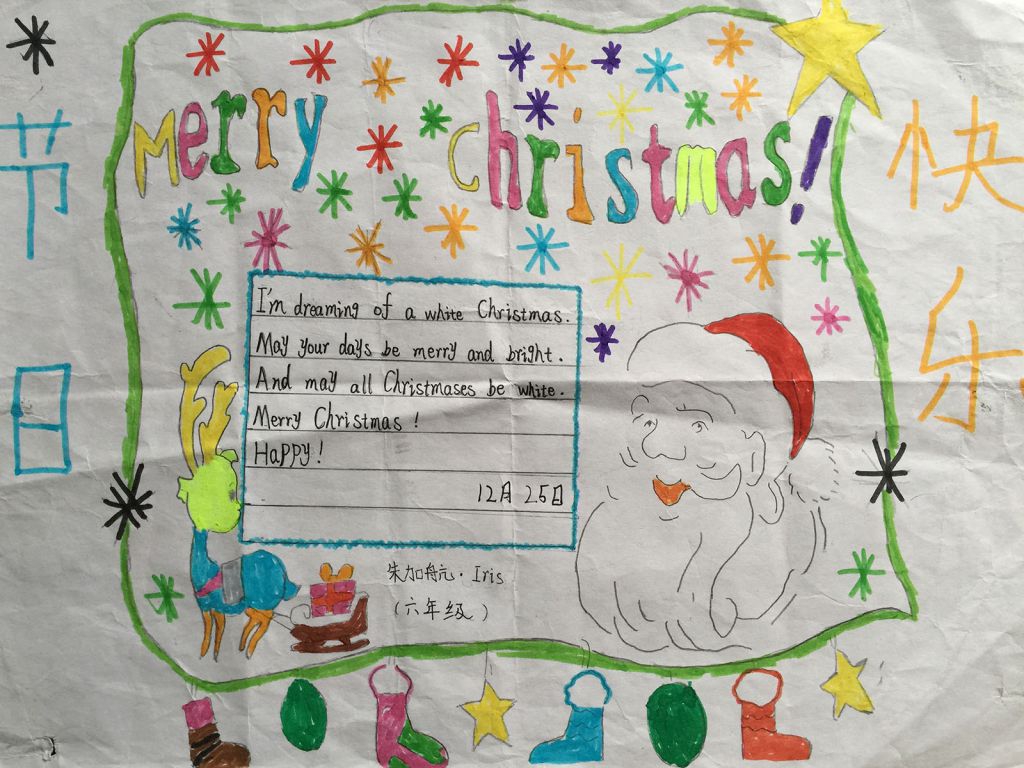 Merry Christmas!
节日
快乐
I'm dreaming of a white Christmas.
May your days be merry and bright.
And may all Christmases be white.
Merry Christmas!
HaPPy!
12月25日
朱加航·Iris
(六年级)